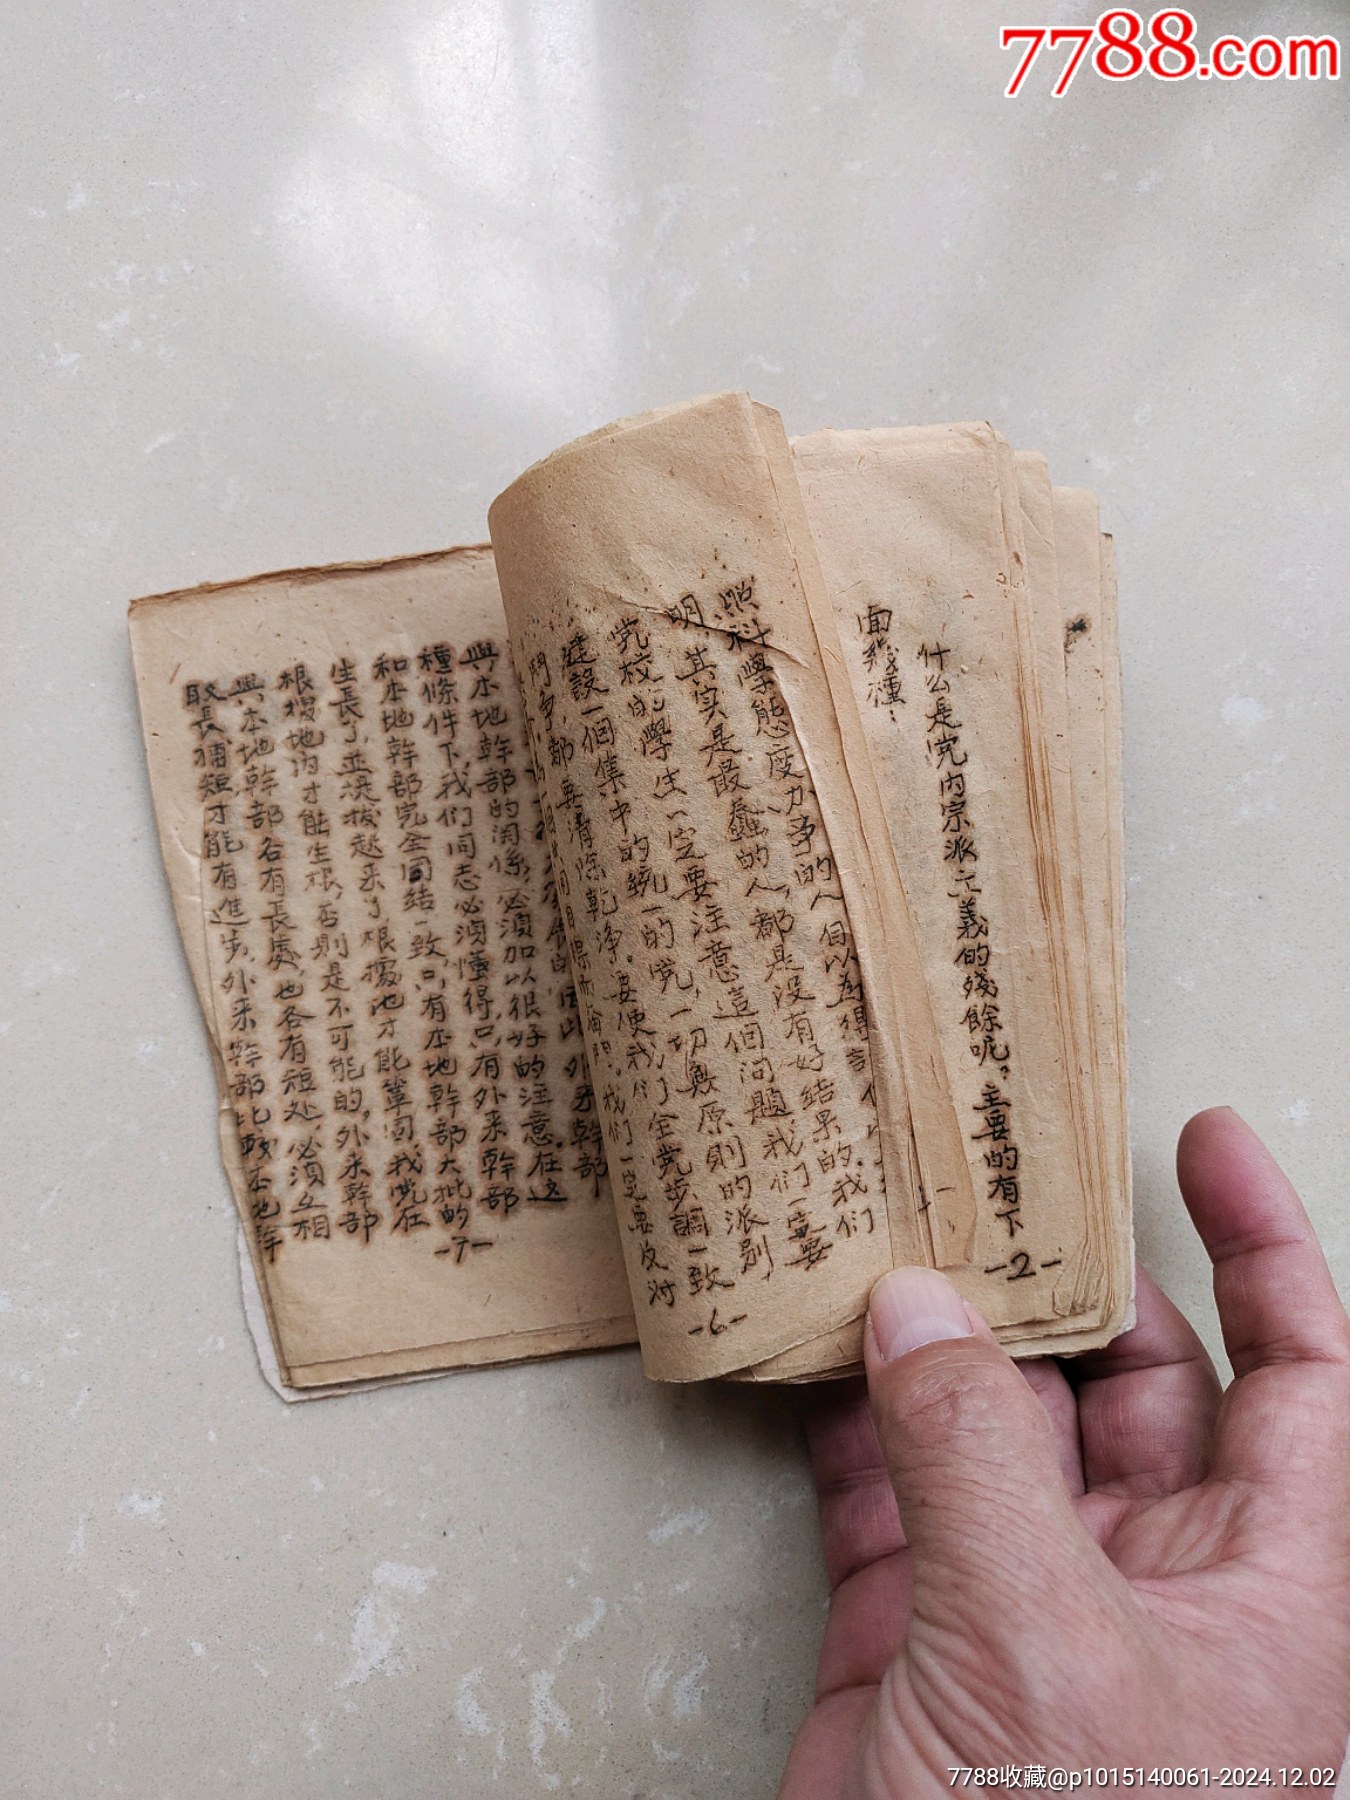 7788.com
什么是党内宗派主義的殘餘呢？主要的有下
面幾種：
-2-
照科學態度办事的人自以為得計
明，其实是最蠢的人，都是没有好結果的。我们
党校的學生一定要注意這個问題，我们一定要
建設一個集中的統一的党，一切無原則的派别
鬥争，都要清除乾净。要使我们全党步調一致
我们一定要反对
-6-
與本地幹部的関係，必須加以很好的注意。在这
種條件下，我们同志必須懂得，只有外来幹部
和本地幹部完全團結一致，只有本地幹部大批的
生長了，並提拔起来了，根據地才能鞏固，我党在
根據地内才能生根，否則是不可能的。外来幹部
與本地幹部各有長處，也各有短处，必須互相
取長補短，才能有進步。外来幹部比較本地幹
-7-
7788收藏@p1015140061-2024.12.02